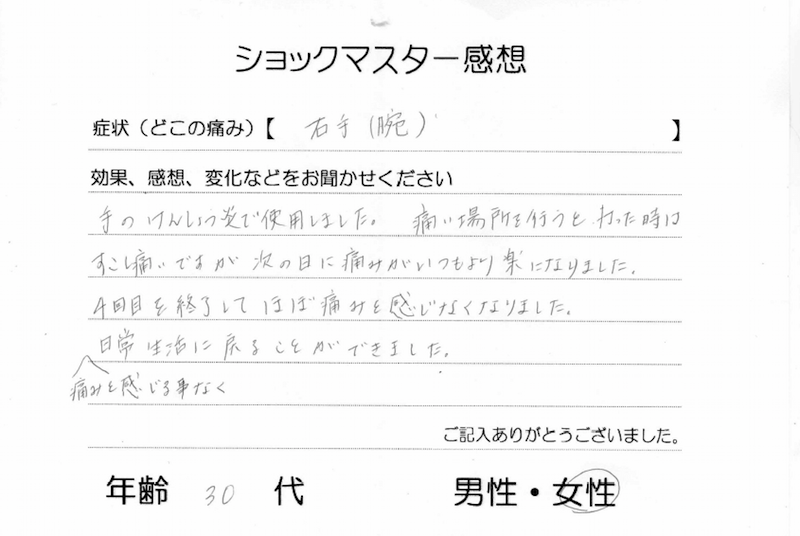 ショックマスター感想
症状（どこの痛み）【 右手(腕) 】
効果、感想、変化などをお聞かせください
手のけんしょう炎で使用しました。 痛い場所を行うと、打った時は
すこし痛いですが次の日に痛みがいつもより楽になりました。
4回目を終了してほぼ痛みを感じなくなりました。
日常生活に戻ることができました。
痛みを感じる事なく
ご記入ありがとうございました。
年齢 30 代 男性・女性